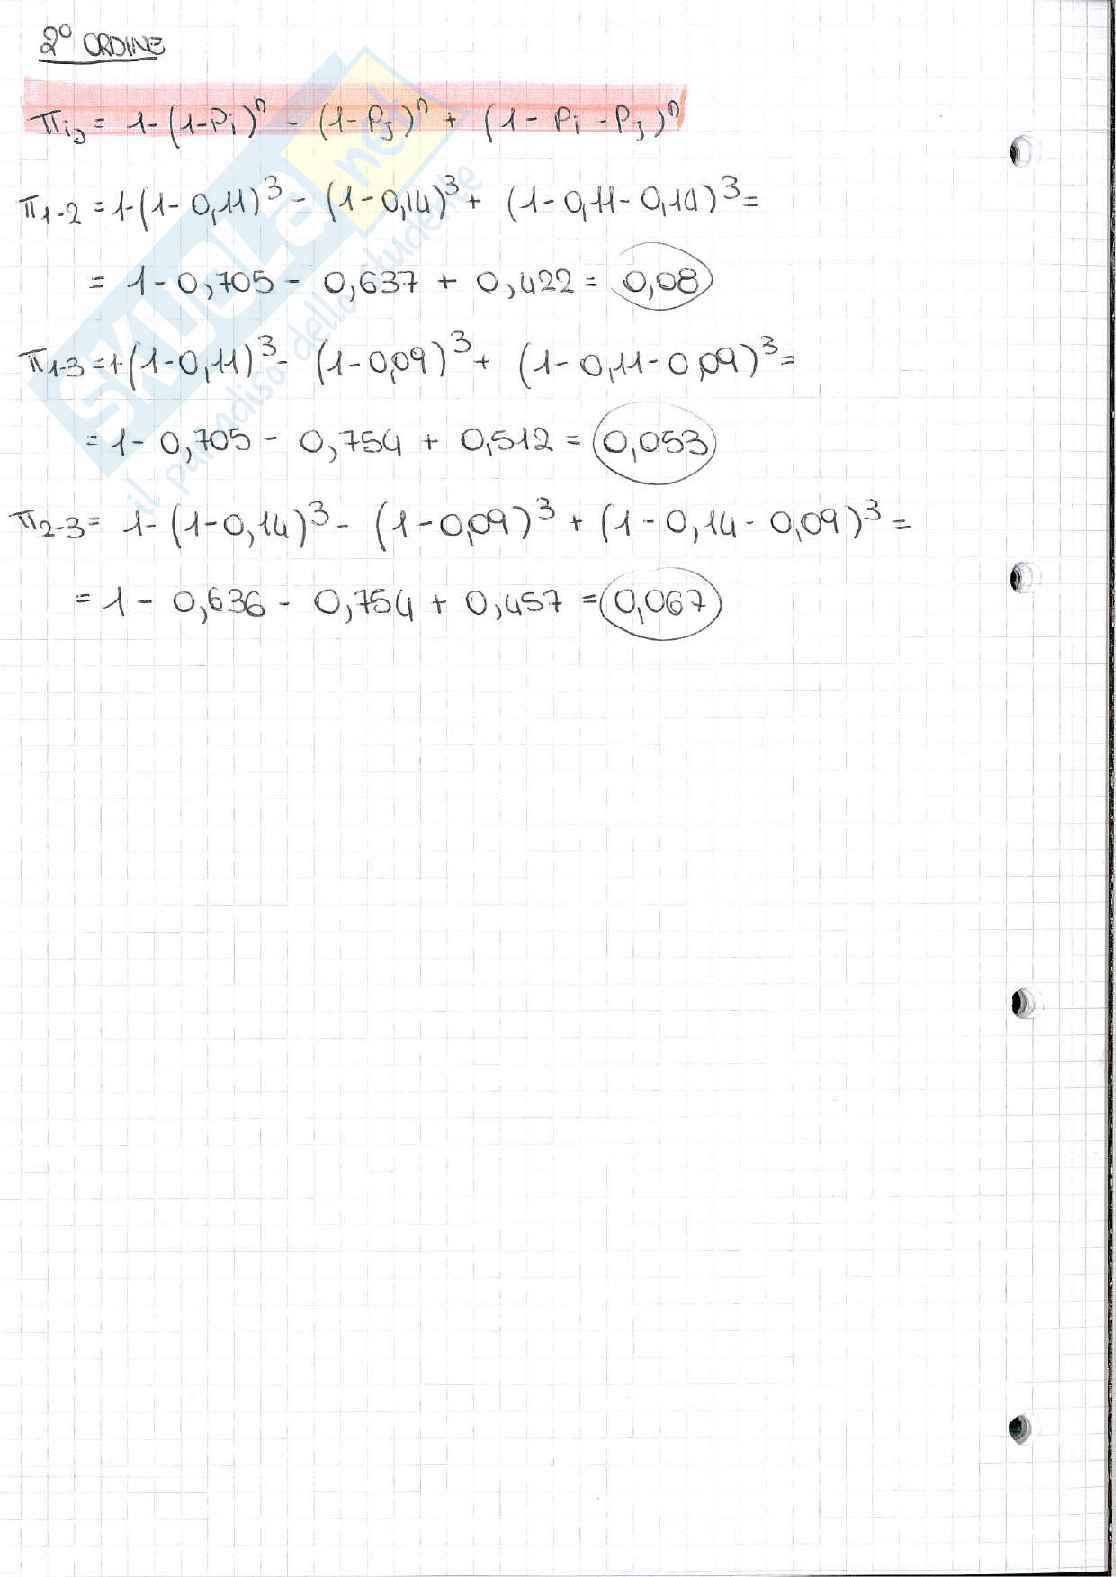 2° ORDINE
πij = 1-(1-Pi)^n - (1-Pj)^n + (1-Pi-Pj)^n
π1-2 = 1-(1-0,11)^3 - (1-0,14)^3 + (1-0,11-0,14)^3 =
= 1-0,705 - 0,637 + 0,422 = 0,08
π1-3 = 1-(1-0,11)^3 - (1-0,09)^3 + (1-0,11-0,09)^3 =
= 1- 0,705 - 0,754 + 0,512 = 0,053
π2-3 = 1-(1-0,14)^3 - (1-0,09)^3 + (1-0,14-0,09)^3 =
= 1 - 0,636 - 0,754 + 0,457 = 0,067
SKUOLA.net
il paradiso dello studente